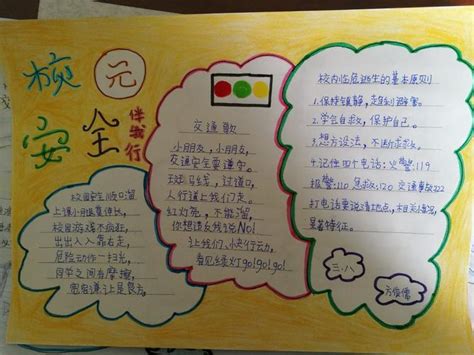 校元
安全
伴我行
校园安全顺口溜
上课小眼莫伸长,
校园游戏不疯狂,
出出入入靠右走,
危险动作一扫光,
同学之间有摩擦,
宽容谦让是良方。
交通歌
小朋友,小朋友,
交通安全要遵守。
过马路,
人行道上我们走。
红灯亮,不能溜,
你想违反我说NO!
让我们,小步行动,
看见绿灯go!go!go!
校内临危逃生的基本原则
1.保持镇静,趋利避害。
2.学会自救,保护自己。
3.想方设法,不断求救。
4.记住四个电话:火警:119
报警:110 急救:120 交通事故122
打电话要说清地点,相关情况,
显著特征。
三.八
方俊儒